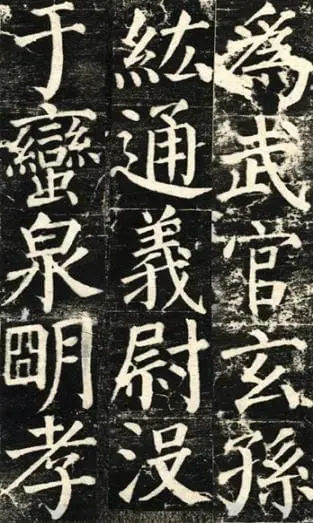 爲武官玄孫
紘通義尉没
于蠻泉朙孝